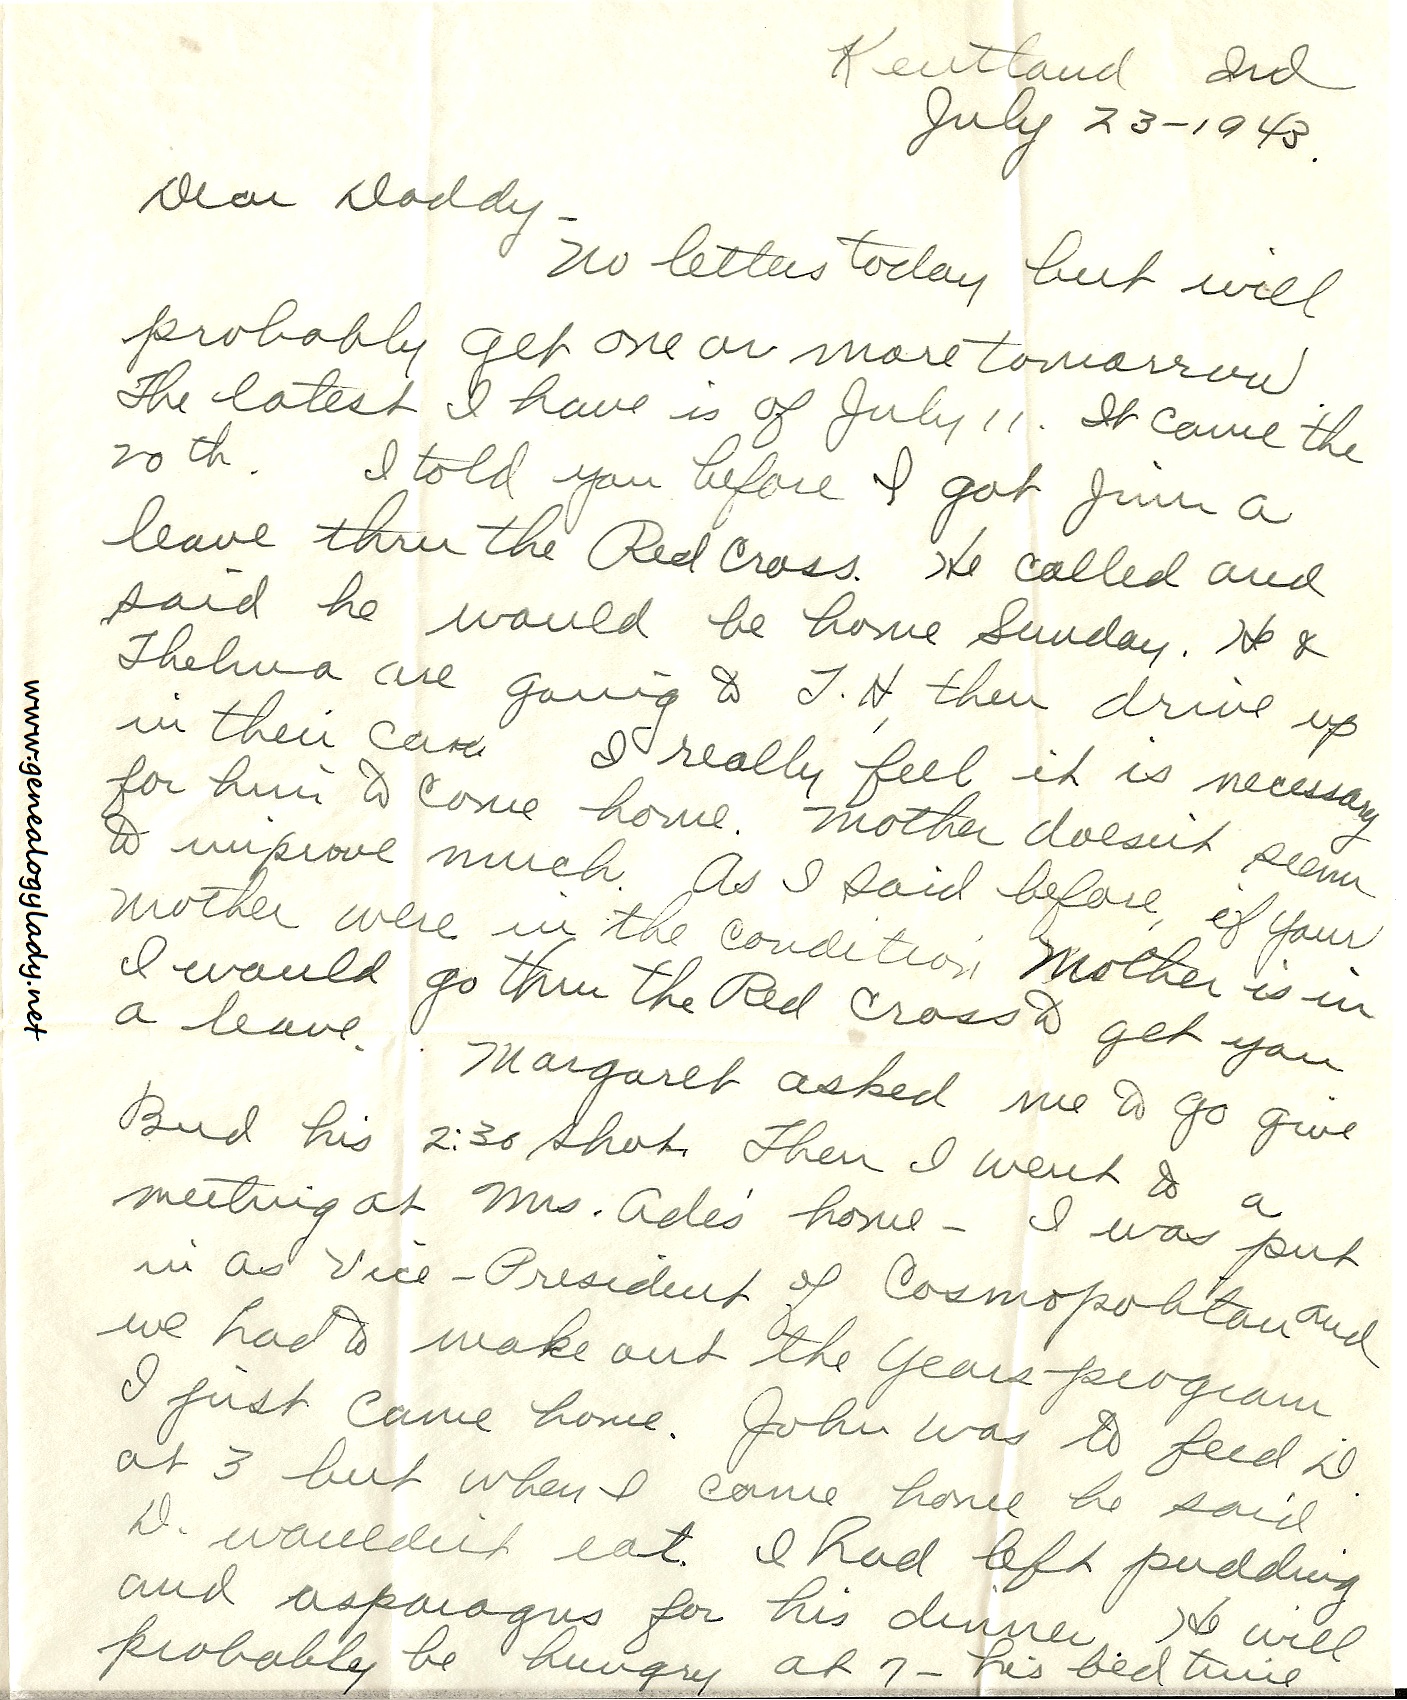 Kentland Ind
July 23-1943.
Dear Daddy-
No letters today but will
probably get one or more tomorrow.
The latest I have is of July 11. It came the
20th. I told you before I got Jim a
leave thru the Red Cross. He called and
said he would be home Sunday. He &
Thelma are going to T.H, then drive up
in their car. I really feel it is necessary
for him to come home. Mother doesn't seem
to improve much. As I said before, if your
mother were in the condition Mother is in
I would go thru the Red Cross to get you
a leave. Margaret asked me to go give
Bud his 2:30 shot. Then I went to a
meeting at Mrs. Ade's home - I was put
in as Vice-President of Cosmopolitan and
we had to make out the years program
I just came home. John was to feed D.
at 3 but when I came home he said
D. wouldn't eat. I had left pudding
and asparagus for his dinner. He will
probably be hungry at 7 - his bed time
www.genealogylady.net